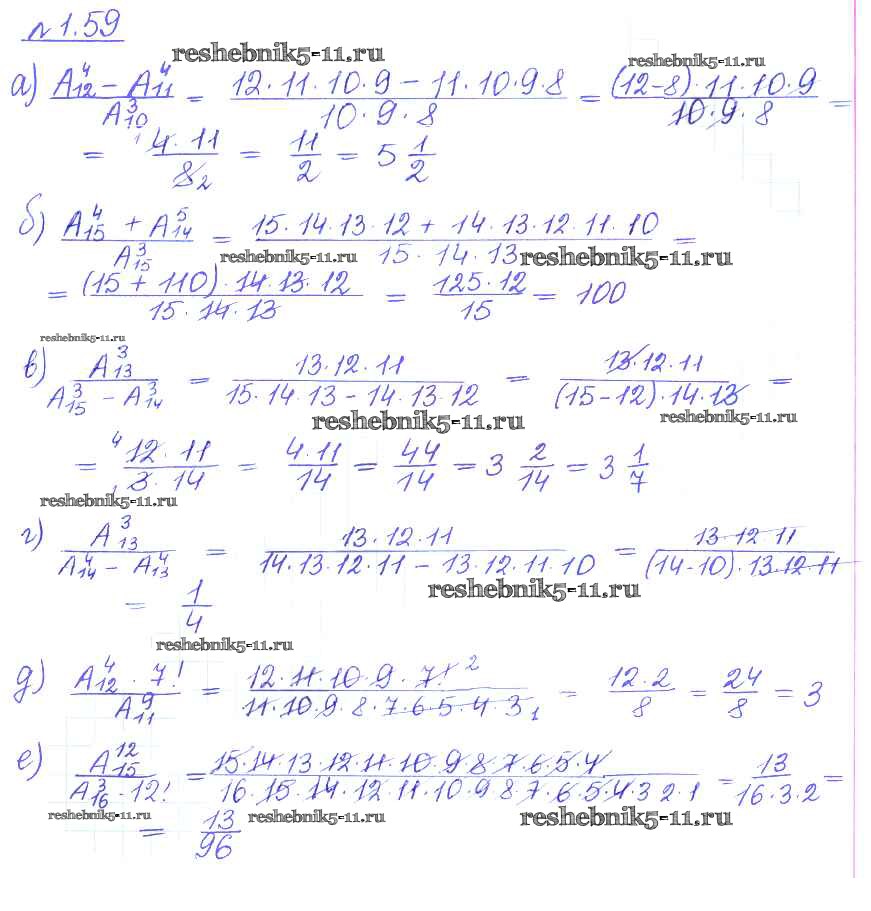 №1.59
reshebnik5-11.ru
reshebnik5-11.ru
а) (A₁₂⁴ − A₁₁⁴)/A₁₀³ = (12·11·10·9 − 11·10·9·8)/(10·9·8) = ((12−8)·11·10·9)/(10·9·8) =
= (4·11)/8 = 11/2 = 5 1/2
б) (A₁₅⁴ + A₁₄⁵)/A₁₅³ = (15·14·13·12 + 14·13·12·11·10)/(15·14·13) =
reshebnik5-11.ru
reshebnik5-11.ru
= ((15 + 110)·14·13·12)/(15·14·13) = (125·12)/15 = 100
reshebnik5-11.ru
в) A₁₃³/(A₁₅³ − A₁₄³) = (13·12·11)/(15·14·13 − 14·13·12) = (13·12·11)/((15−12)·14·13) =
reshebnik5-11.ru
reshebnik5-11.ru
= (12·11)/(3·14) = (4·11)/14 = 44/14 = 3 2/14 = 3 1/7
reshebnik5-11.ru
г) A₁₃³/(A₁₄⁴ − A₁₃⁴) = (13·12·11)/(14·13·12·11 − 13·12·11·10) = (13·12·11)/((14-10)·13·12·11)
reshebnik5-11.ru
= 1/4
reshebnik5-11.ru
д) (A₁₂⁴·7!)/A₁₁⁹ = (12·11·10·9·7!)/(11·10·9·8·7·6·5·4·3) = (12·2)/8 = 24/8 = 3
е) A₁₅¹²/(A₁₆³·12!) = (15·14·13·12·11·10·9·8·7·6·5·4)/(16·15·14·12·11·10·9·8·7·6·5·4·3·2·1) = 13/(16·3·2) =
reshebnik5-11.ru
reshebnik5-11.ru
reshebnik5-11.ru
= 13/96